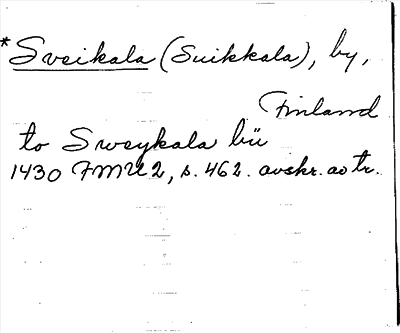 *Sveikala (Suikkala), by,
Finland
to Sweykala bü
1430 FMU 2, s. 462. avskr. av tr.